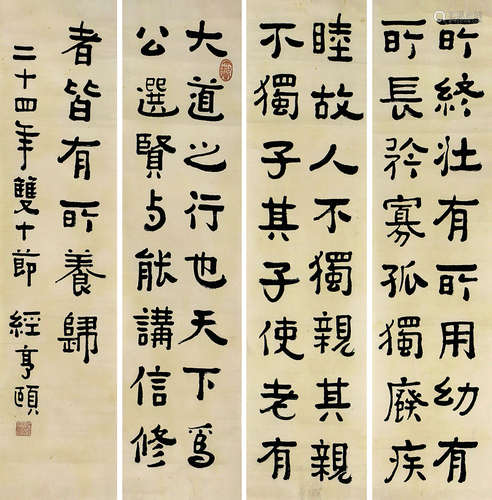 大道之行也天下為
公選賢与能講信修
睦故人不獨親其親
不獨子其子使老有
所終壯有所用幼有
所長矜寡孤獨廢疾
者皆有所養歸
二十四年雙十節 經亨頤